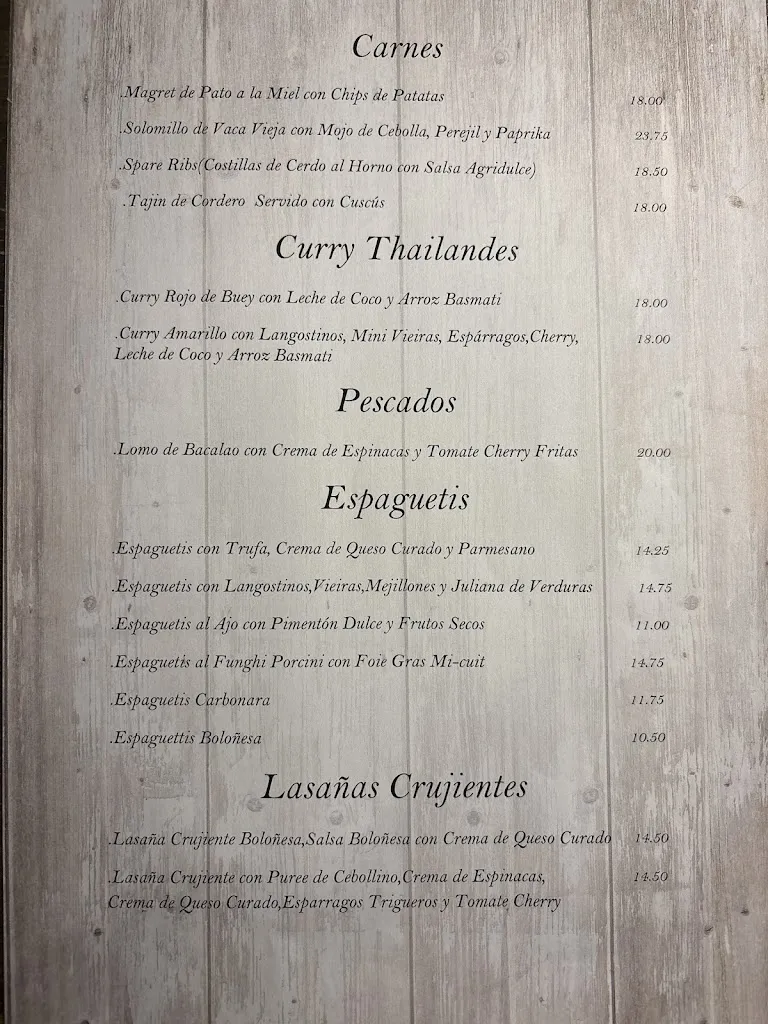 Carnes
.Magret de Pato a la Miel con Chips de Patatas 18.00
.Solomillo de Vaca Vieja con Mojo de Cebolla, Perejil y Paprika 23.75
.Spare Ribs(Costillas de Cerdo al Horno con Salsa Agridulce) 18.50
.Tajin de Cordero Servido con Cuscús 18.00
Curry Thailandes
.Curry Rojo de Buey con Leche de Coco y Arroz Basmati 18.00
.Curry Amarillo con Langostinos, Mini Vieiras, Espárragos,Cherry, 18.00
Leche de Coco y Arroz Basmati
Pescados
.Lomo de Bacalao con Crema de Espinacas y Tomate Cherry Fritas 20.00
Espaguetis
.Espaguetis con Trufa, Crema de Queso Curado y Parmesano 14.25
.Espaguetis con Langostinos,Vieiras,Mejillones y Juliana de Verduras 14.75
.Espaguetis al Ajo con Pimentón Dulce y Frutos Secos 11.00
.Espaguetis al Funghi Porcini con Foie Gras Mi-cuit 14.75
.Espaguetis Carbonara 11.75
.Espaguettis Boloñesa 10.50
Lasañas Crujientes
.Lasaña Crujiente Boloñesa,Salsa Boloñesa con Crema de Queso Curado 14.50
.Lasaña Crujiente con Puree de Cebollino,Crema de Espinacas, 14.50
Crema de Queso Curado,Esparragos Trigueros y Tomate Cherry